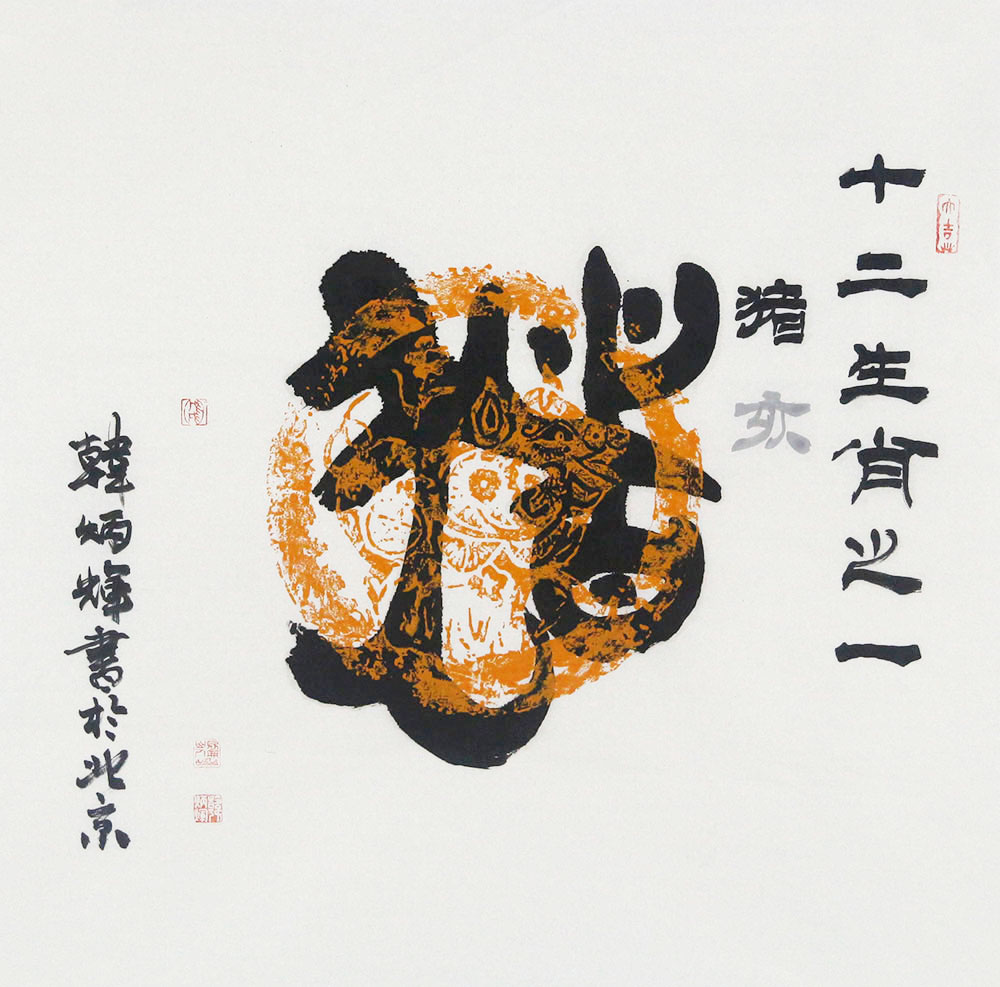 十二生肖之一
猪
亥
猪
韓炳辉書於北京